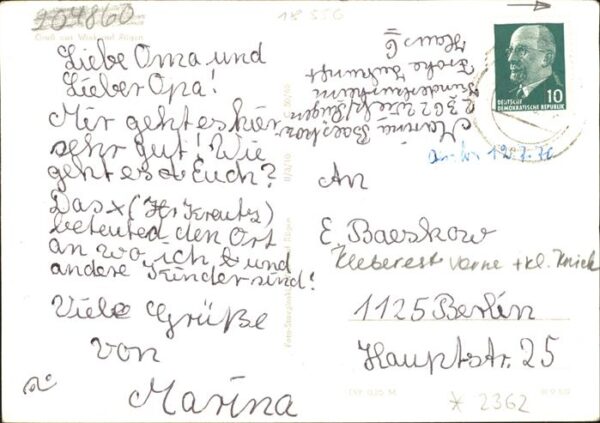 204860
18 556
Liebe Oma und
Lieber Opa!
Mir geht es hier
sehr gut! Wie
geht es Euch?
Das x (Ihr Kreutz)
beteuted den Ort
an wo ich & und
andere Kinder sind!
Viele Grüße
von
Marina
Marina Baeskow
2362 Wiek/Rügen
Kinderkurheim
Frohe Zukunft
Haus 6
DEUTSCHE
DEMOKRATISCHE REPUBLIK
10
An
E. Baeskow
Kleberest vorne + kl. Knick
1125 Berlin
Hauptstr. 25
* 2362